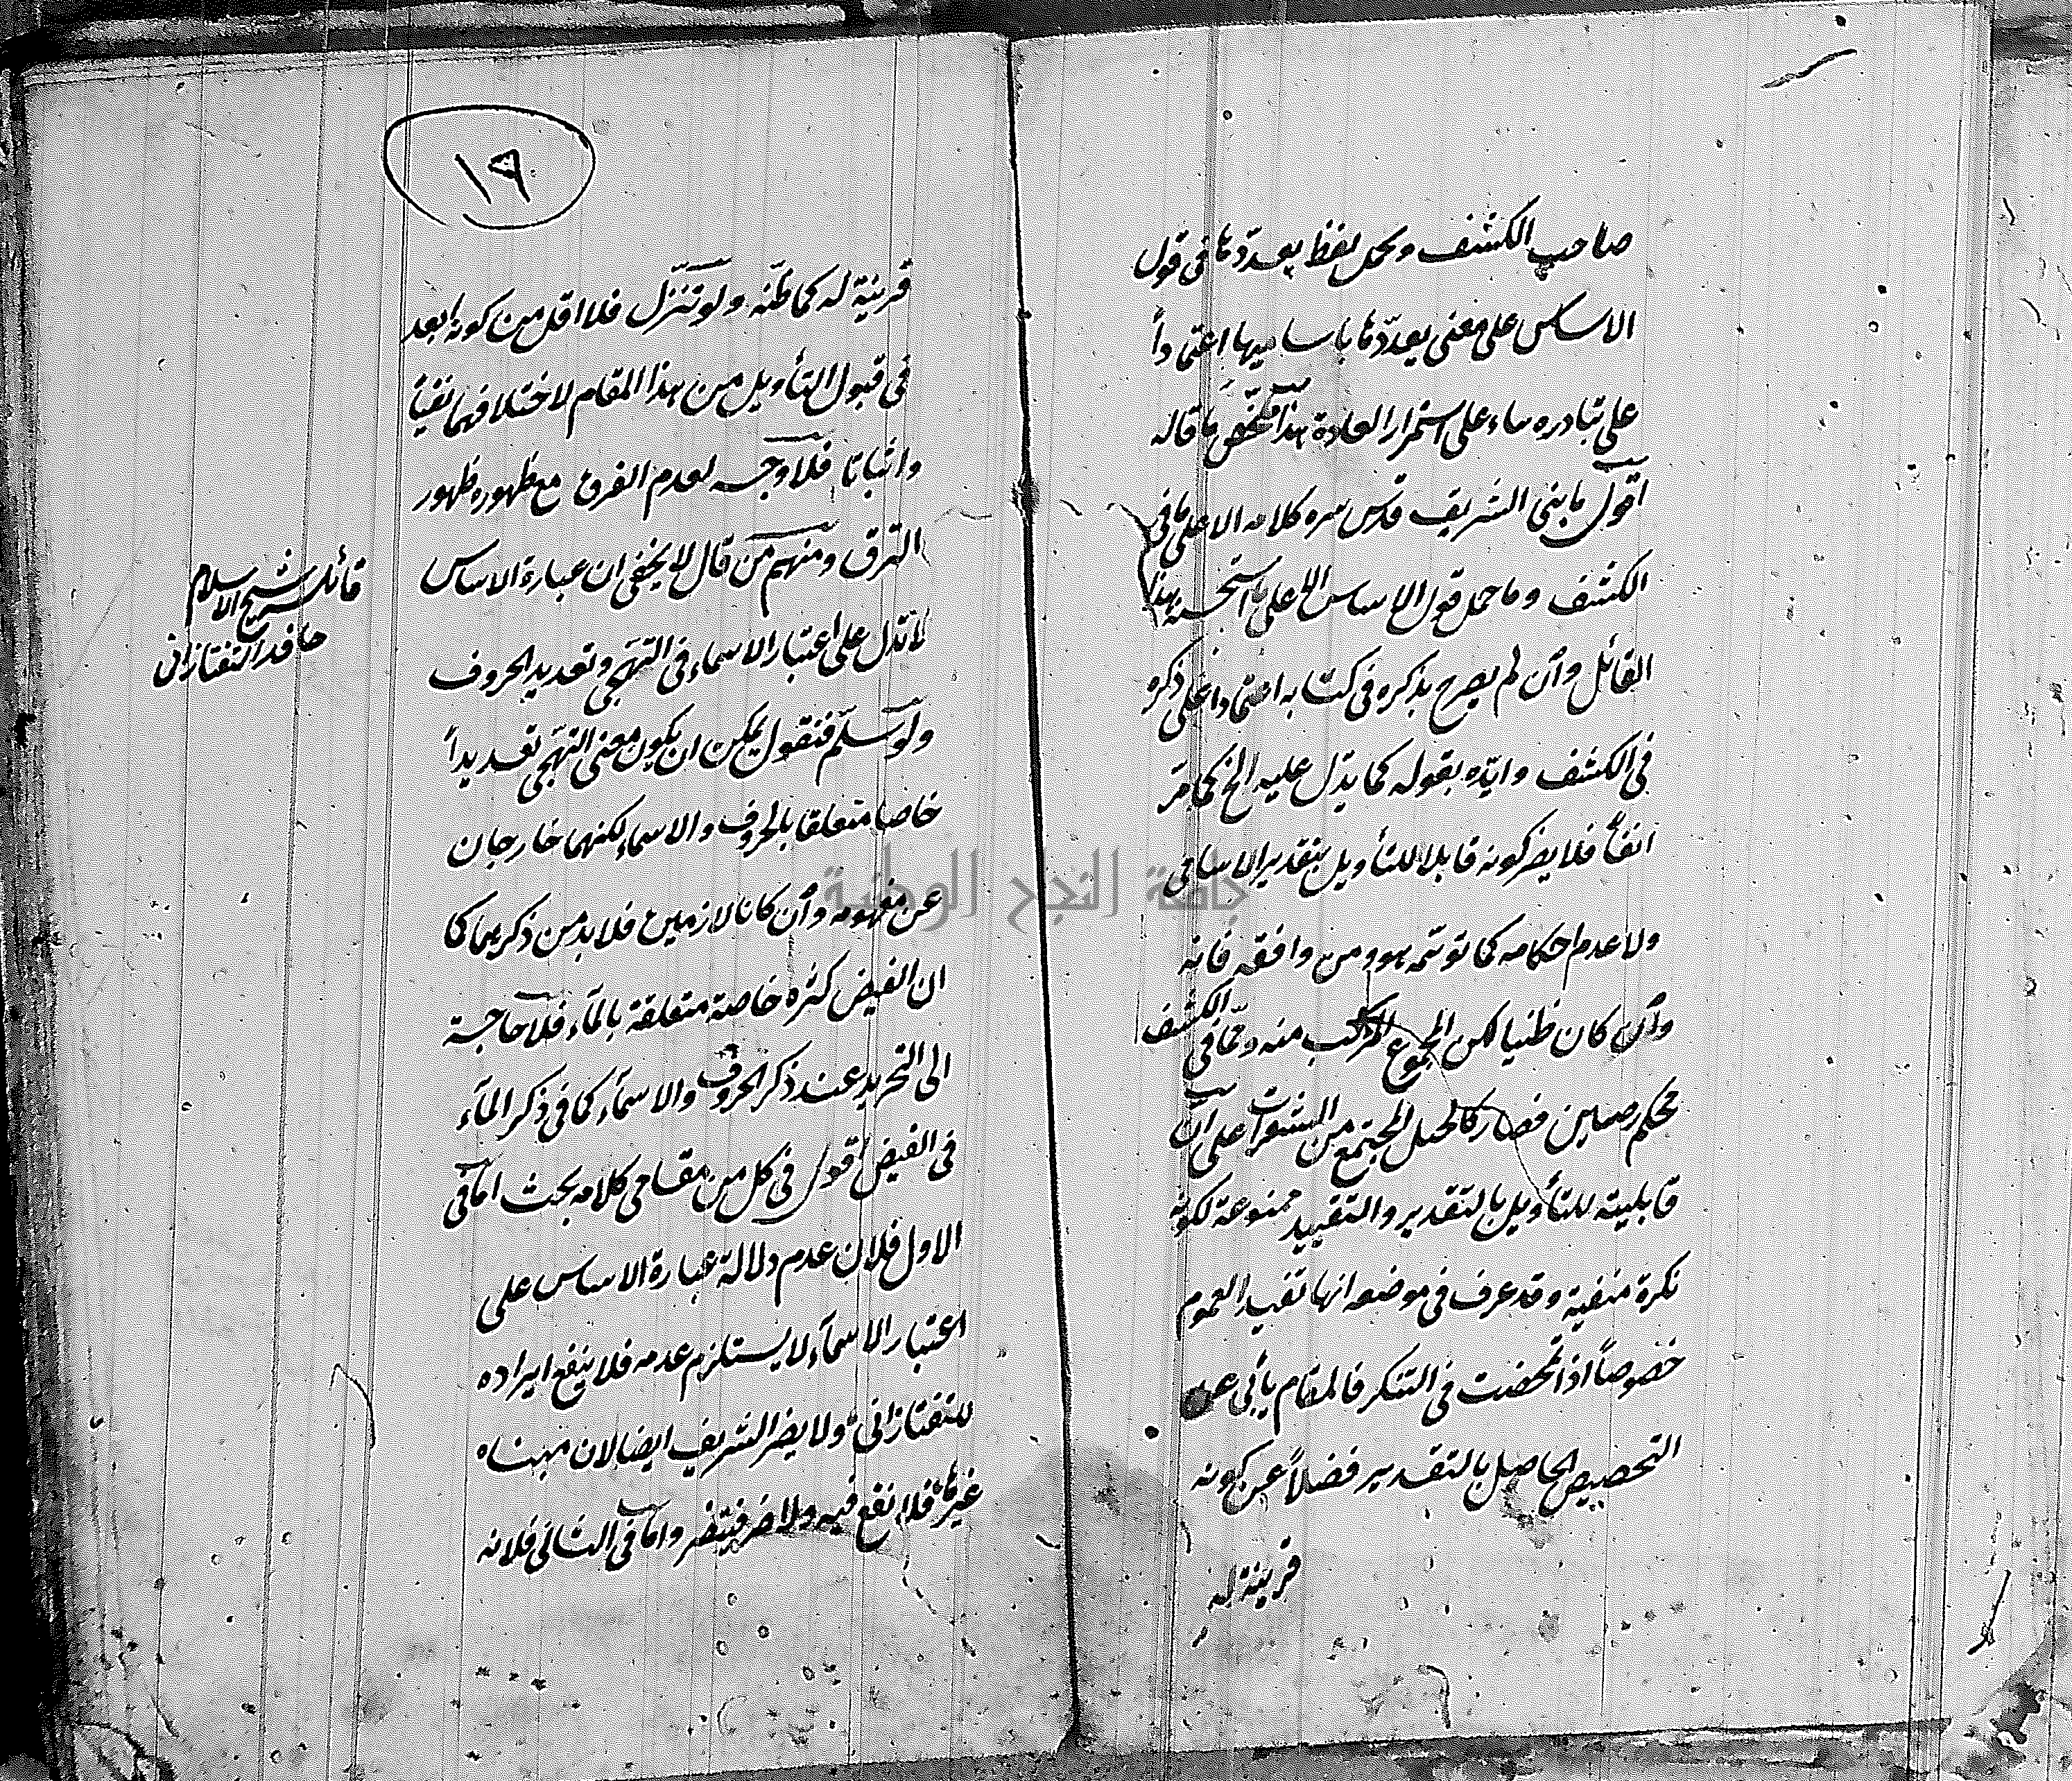 صاحب الكشف ويحمل لفظ يعددها في قول
الاساس على معنى يعددها باساميها اعتمادا
على تبادره بناء على استمرار العادة هذا ملخص ما قاله
اقول ما بنى الشريف قدس سره كلامه الا على ما في
الكشف وما حمل قول الاساس الا على ما استحسنه هذا
القائل وان لم يصرح بذكره في كتابه اعتمادا على ذكره
في الكشف وايده بقوله كما يدل عليه الخ كما مر
انفا فلا يضر كونه قابلا للتأويل بتقدير الاسامي
ولا عدم احكامه كما توهمه هو ومن وافقه فانه
وان كان ظنيا لكن المجموع المركب منه ومما في الكشف
محكم رصين فصار كالحبل المجتمع من الشعرات على ان
قابليته للتأويل بالتقدير والتقييد ممنوعة لكونه
نكرة منفية وقد عرف في موضعه انها تفيد العموم
خصوصا اذا تمحضت في التنكر فالمقام يأبى عن
التخصيص الحاصل بالتقدير فضلا عن كونه
قرينة له
١٩
قرينة له كما ظنه ولو تنزل فلا اقل من كونه ابعد
في قبول التأويل من هذا المقام لاختلافهما نفيا
واثباتا فلا وجه لعدم الفرق مع ظهوره ظهور
الفرق ومنهم من قال لا يخفى ان عبارة الاساس
لا تدل على اعتبار الاسماء في التهجي وتعديد الحروف
ولو سلم فنقول يمكن ان يكون معنى التهجي تعديدا
خاصا متعلقا بالحروف والاسماء لكنهما خارجان
عن مفهومه وان كانا لازمين فلا بد من ذكرهما كما
ان الفيض كثرة خاصة متعلقة بالماء فلا حاجة
الى التجريد عند ذكر الحروف والاسماء كما في ذكر الماء
في الفيض اقول في كل من مقامي كلامه بحث اما في
الاول فلان عدم دلالة عبارة الاساس على
اعتبار الاسماء لا يستلزم عدمه فلا ينفع ايراده
للتفتازاني ولا يضر الشريف ايضا لان مبناه
غيرها فلا نفع فيه ولا ضر فيتضر واما في الثاني فلانه
قائله شيخ الاسلام
حافد التفتازاني
جامعة النجاح الوطنية